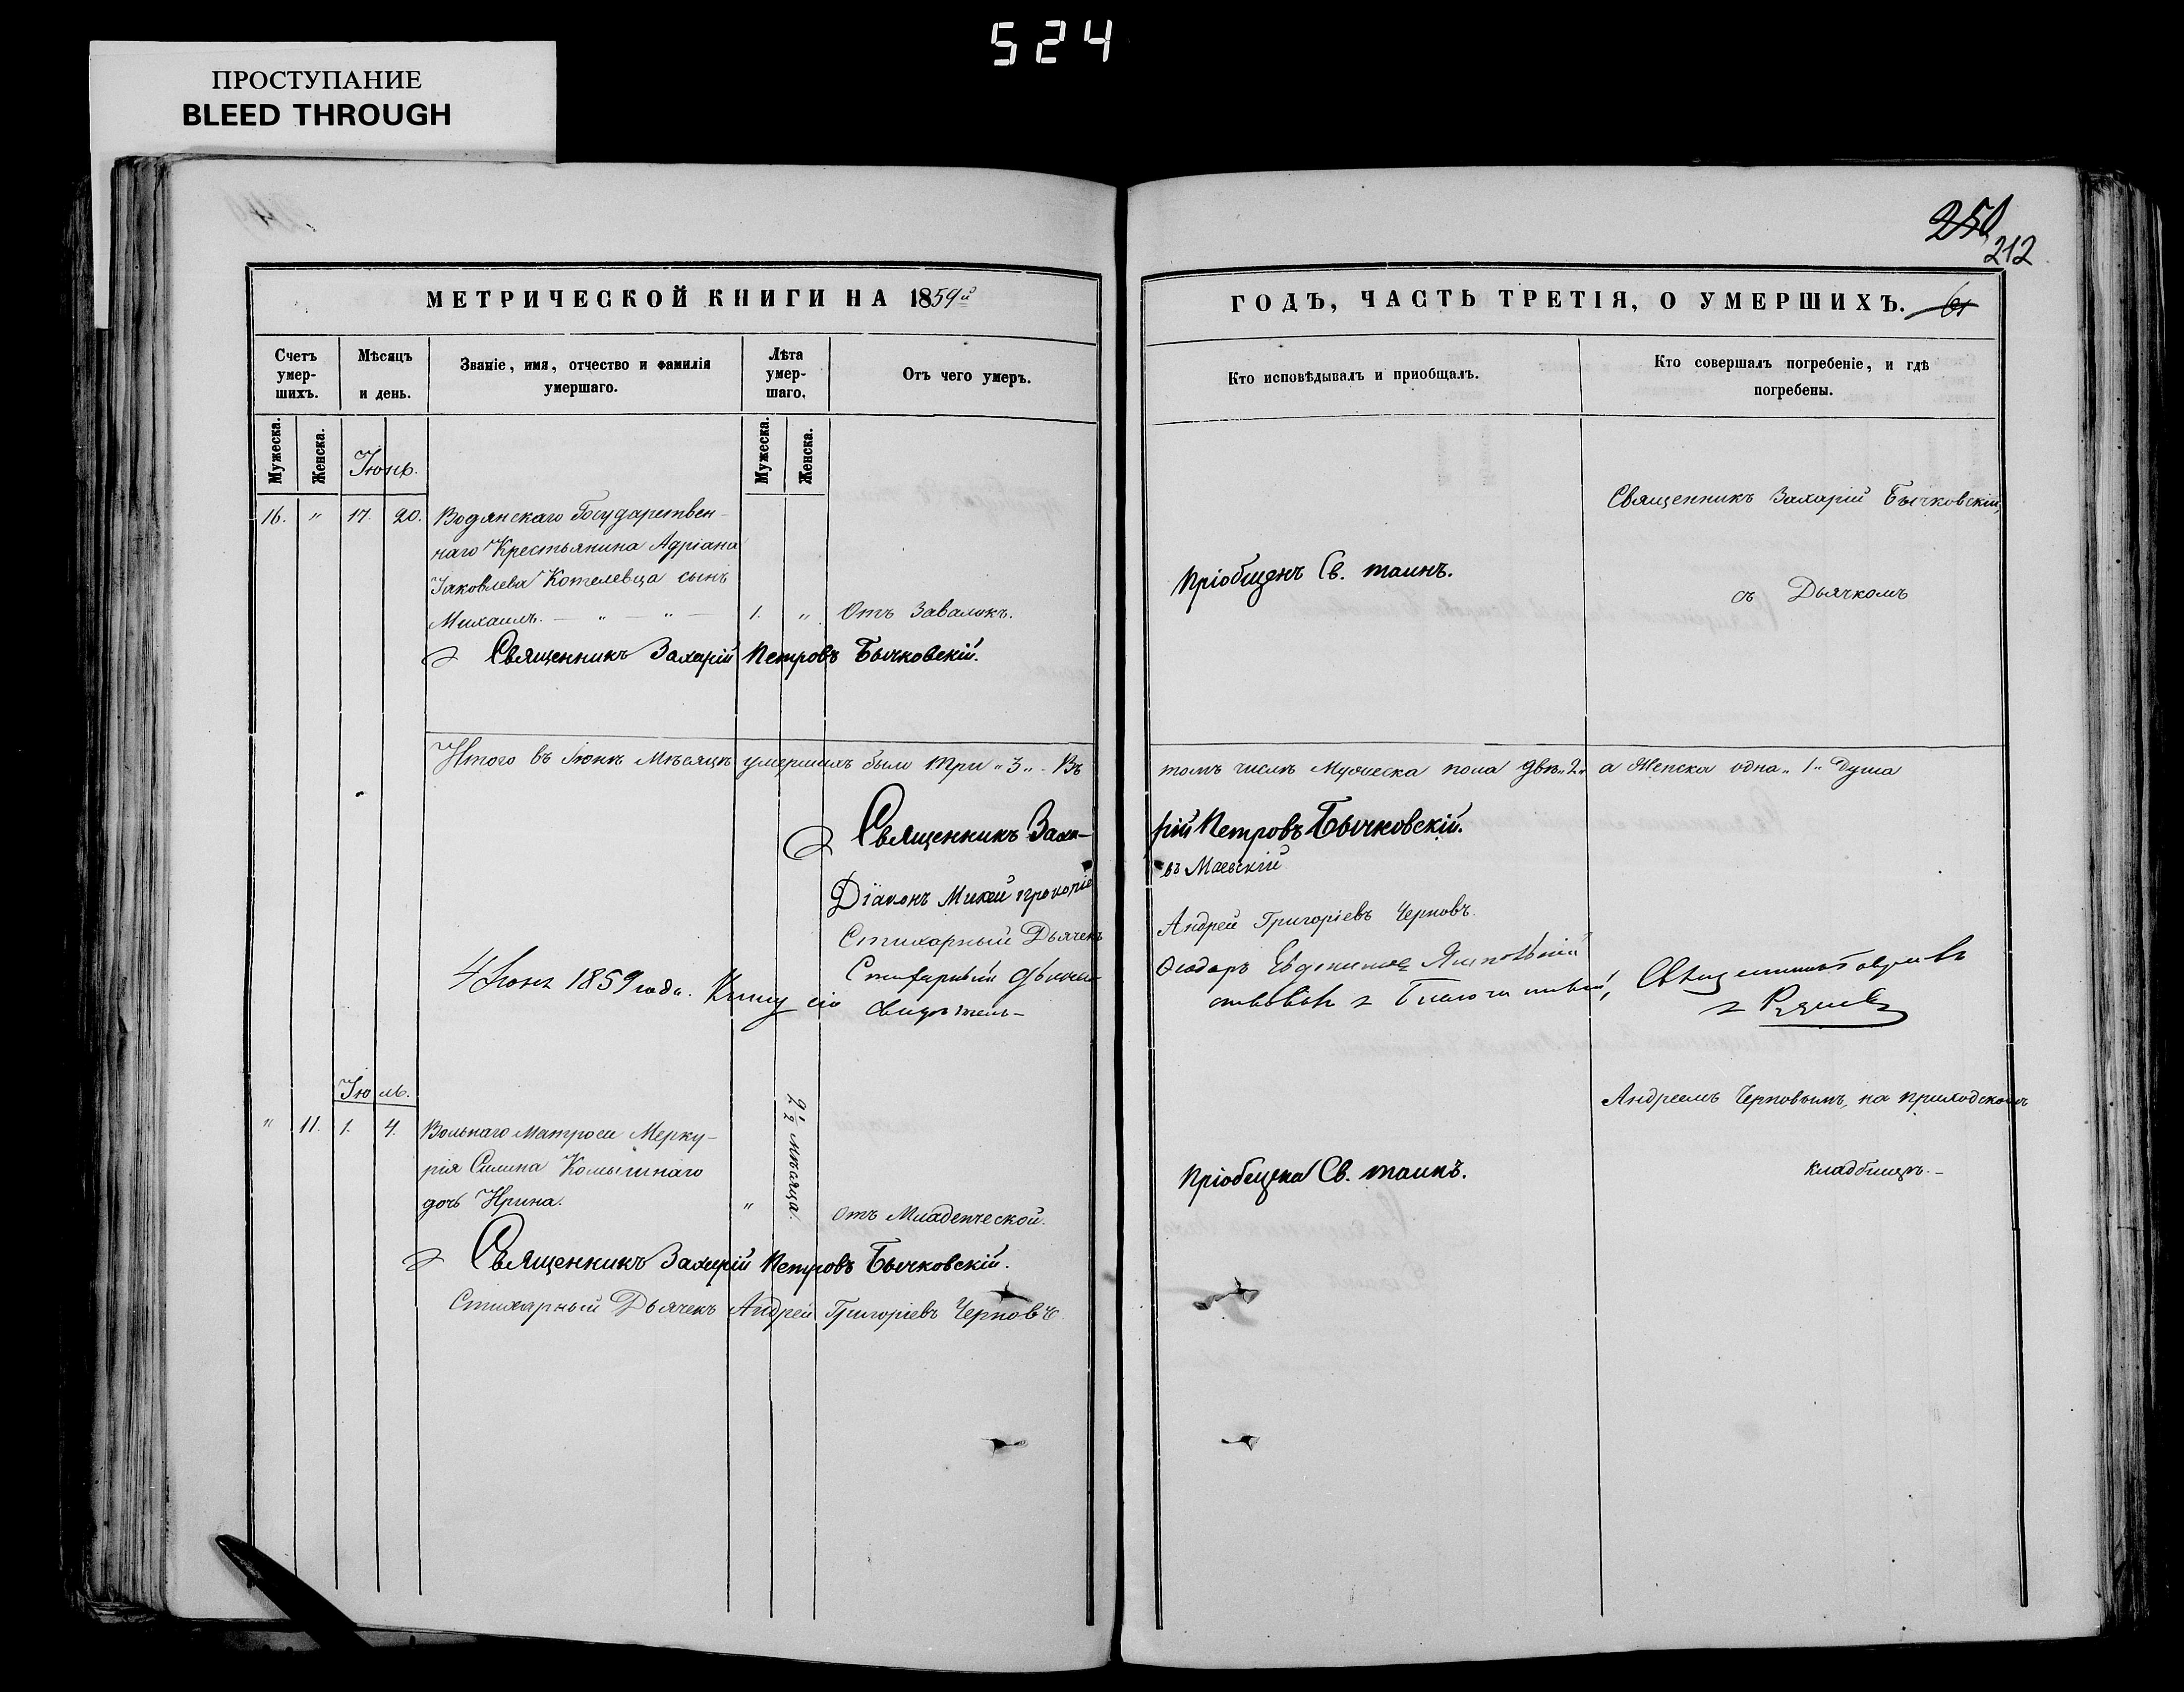 524
ПРОСТУПАНИЕ
BLEED THROUGH
250
212
МЕТРИЧЕСКОЙ КНИГИ НА 1859й
Счетъ умер-шихъ.
Мѣсяцъ и день.
Званіе, имя, отчество и фамилія умершаго.
Лѣта умер-шаго.
Отъ чего умеръ.
Мужеска.
Женска.
Мужеска.
Женска.
Іюнь.
16. " 17. 20. Водянскаго Государствен-
наго Крестьянина Адріана
Іаковлева Котелевца сынъ
Михаилъ. — " — " — 1. " Отъ Завалокъ.
Священникъ Захарій Петровъ Бычковскій.
Итого въ Іюнѣ Мѣсяцѣ умершихъ было три "3" Въ
Священникъ Заха-
Діаконъ Михей Прокопіе
Стихарный Дьячекъ
Стихарный
4 Іюля 1859 года. Книгу сію свидѣтель-
Іюль.
" 11. 1. 4. Вольнаго Матроса Мерку-
рія Силина Комышнаго
дочь Ирина. " 9 ½ мѣсяца. отъ Младенческой.
Священникъ Захарій Петровъ Бычковскій.
Стихарный Дьячекъ Андрей Григоріевъ Черновъ
ГОДЪ, ЧАСТЬ ТРЕТІЯ, О УМЕРШИХЪ. 61
Кто исповѣдывалъ и приобщалъ.
Кто совершалъ погребеніе, и гдѣ погребены.
Священникъ Захарій Бычковскій,
Пріобщенъ Св. таинъ.
съ Дьячкомъ
томъ числѣ Мужеска пола двѣ "2" а Женска одна "1" душа
рій Петровъ Бычковскій.
въ Маевскій
Андрей Григоріевъ Черновъ.
Ѳеодоръ
ствовалъ Благочинный, Священникъ
Андреемъ Черновымъ, на приходскомъ
Пріобщена Св. таинъ.
кладбищѣ. -